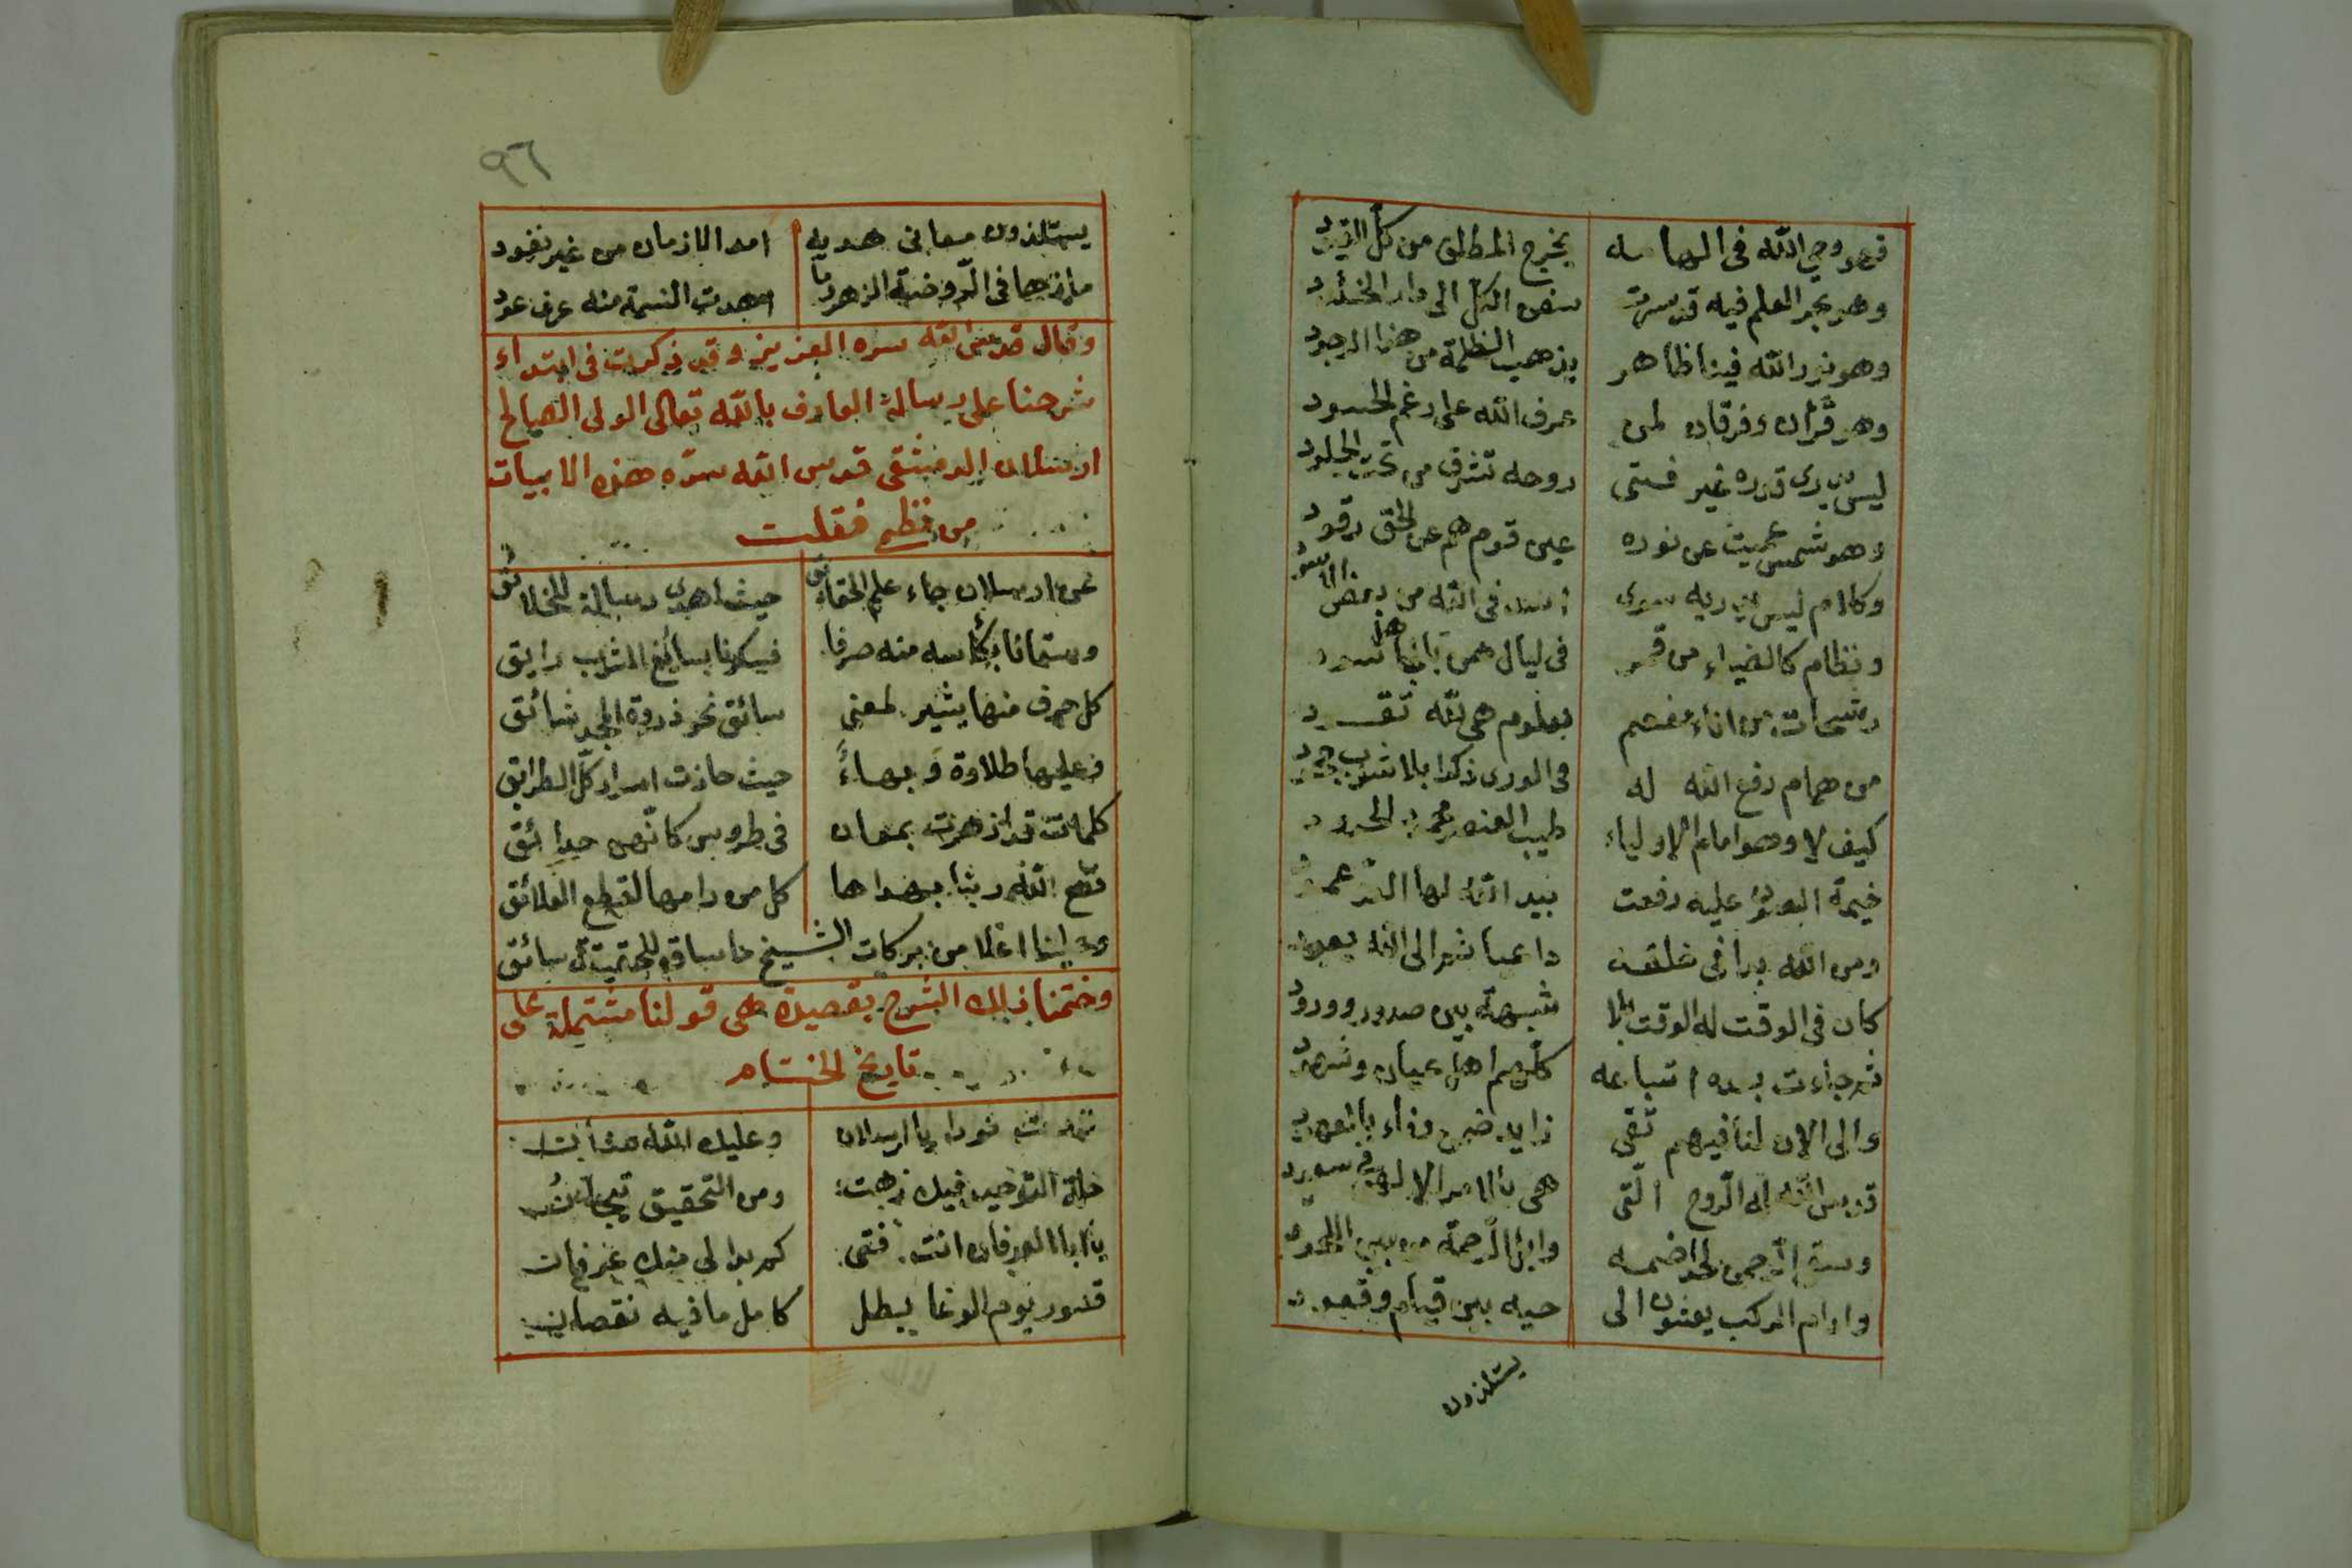 فهو وحي الله في الهامه يخرج المطلق من كل القيود
وهو بحر العلم فيه قد سرت سفن الكل الى دار الخلود
وهو نور الله فينا ظاهر يذهب الظلمة من هذا الوجود
وهو قرآن وفرقان لمن عرف الله على رغم الحسود
ليس يدري قدره غير فتى روحه تشرق من تحت الجلود
وهو شمس عميت عن نوره عين قوم هم عن الحق رقود
وكلام ليس يدريه سوى اسد في الله من بعض الاسود
ونظام كالضياء من قمر في ليال هن بانها سود
رشحات من اناء مفعم بعلوم هي لله تقود
من همام رفع الله له في الورى ذكرا بلا شوب جحود
كيف لا وهو امام الاولياء طيب العنصر محمود الجدود
خيمة العز عليه رفعت بيد الله لها السر عمود
ومن الله بدا في خلقه داعيا ثم الى الله يعود
كان في الوقت له الوقت بلا شبهة بين صدور وورود
ثم جاءت بعده اتباعه كلهم اهل عيان وشهود
والى الان لنا فيهم تقى زايد ضمن وفاء بالعهود
قدس الله له الروح التي هي بالامر الالهي سجود
وسقى الرحمن لحدا ضمه وابل الرحمة من بين اللحود
وادام الركب يعشون الى حيه بين قيام وقعود
يستلذون
٩٦
يستلذون معاني هديه امد الازمان من غير نفود
ما زها في الروضة الزهر وما اهدت النسمة منه عرف عود
وقال قدس الله سره العزيز وقد ذكرت في ابتداء
شرحنا على رسالة العارف بالله تعالى الولي الصالح
ارسلان الدمشقي قدس الله سره هذه الابيات
من نظمي فقلت
عن ارسلان جاء علم الحقائق حيث اهدى رسالة للخلائق
وسقانا بكأسه منه صرفا فسكرنا بسائغ الشرب رايق
كل حرف منها يشير لمعنى سائق نحو ذروة المجد شائق
فعليها طلاوة وبهاءً حيث حازت اسرار كل الطرايق
كلمات قد ازهرت بمعان في طروس كانهن حدائق
نفع الله ربنا بهداها كل من رامها لقطع العلائق
وحبانا اعلا من بركات الشيخ ما ساق للحقيقة سائق
وختمنا ذلك الشرح بقصيدة هي قولنا مشتملة على
تاريخ الختام
نورا يا ارسلان وعليك الله
خلة التوحيد فيك زهت ومن التحقيق تيجان
يا ابا العرفان انت فتى كم بدا لي منك عرفان
قسور يوم الوغا بطل كامل ما فيه نقصان